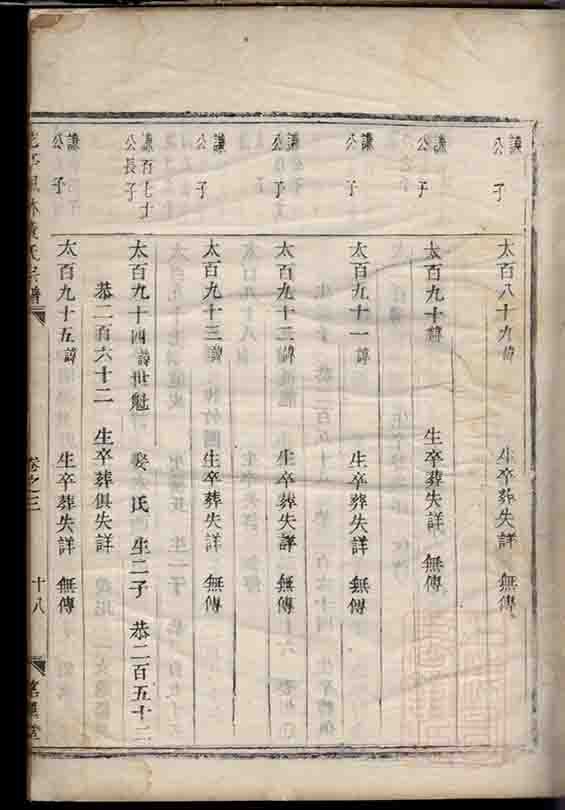 諱 公 子
太百八十九諱 生卒葬失詳 無傳
諱 公 子
太百九十諱 生卒葬失詳 無傳
諱 公 子
太百九十一諱 生卒葬失詳 無傳
諱 公 子
太百九十二諱 生卒葬失詳 無傳
諱 公 子
太百九十三諱 生卒葬失詳 無傳
公長子
太百九十四諱世魁 娶 氏 生二子 恭二百五十二
恭二百六十二 生卒葬俱失詳
諱 公 子
太百九十五諱 生卒葬失詳 無傳
黃氏宗譜 卷之三 十八 堂